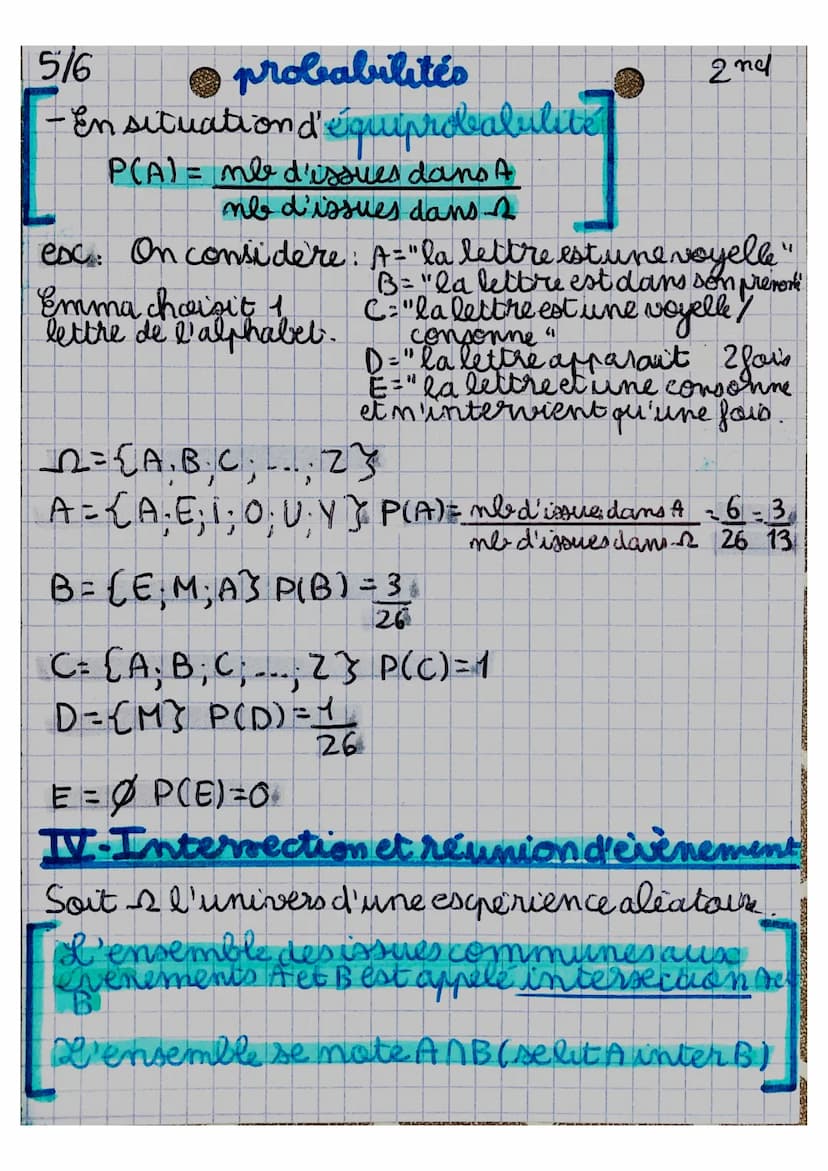 5/6 probabilités 2nd
- En situation d'équiprobabulité
P(A) = nb d'issues dans A
nb d'issues dans Ω
ex: On considère: A="la lettre est une voyelle"
B="la lettre est dans son prénom"
Emma choisit 1
lettre de l'alphabet.
C="la lettre est une voyelle/
consonne"
D="la lettre apparait 2 fois
E="la lettre et une consonne
et n'intervient qu'une fois.
Ω={A;B;C;...;Z}
A={A;E;I;O;U;Y} P(A)= nb d'issues dans A / nb d'issues dans Ω = 6/26 = 3/13
B={E;M;A} P(B)=3/26
C={A;B;C;...;Z} P(C)=1
D={M} P(D)=1/26
E=∅ P(E)=0
IV-Intersection et réunion d'évènement
Soit Ω l'univers d'une expérience aléatoire.
L'ensemble des issues communes aux
évènements A et B est appelé intersection A et
B
L'ensemble se note A∩B (se lit A inter B)